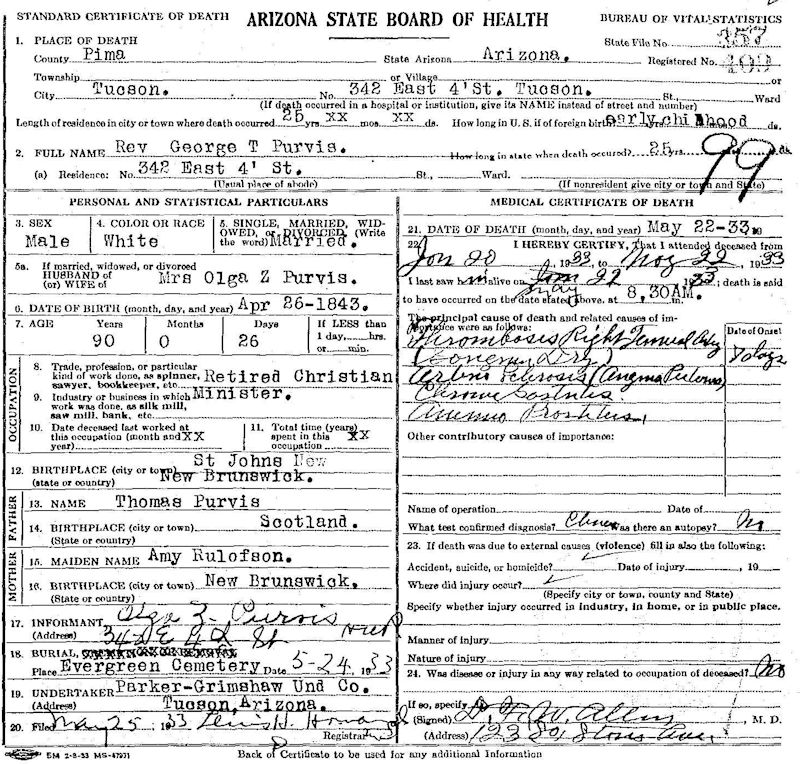 STANDARD CERTIFICATE OF DEATH ARIZONA STATE BOARD OF HEALTH BUREAU OF VITAL STATISTICS
1. PLACE OF DEATH
State File No.
County Pima State Arizona Arizona. Registered No.
Township or Village or
City Tucson. No. 342 East 4' St. Tucson. St., Ward
(If death occurred in a hospital or institution, give its NAME instead of street and number)
Length of residence in city or town where death occurred 25 yrs. xx mos. xx ds. How long in U.S. if of foreign birth? early chi dhood ds.
2. FULL NAME Rev George T Purvis. How long in state when death occured? 25 yrs. ds.
99
(a) Residence: No. 342 East 4' St. St., Ward.
(Usual place of abode) (If nonresident give city or town and State)
PERSONAL AND STATISTICAL PARTICULARS
3. SEX Male
4. COLOR OR RACE White
5. SINGLE, MARRIED, WIDOWED, or DIVORCED, (Write the word) Married.
5a. If married, widowed, or divorced
HUSBAND of
(or) WIFE of Mrs Olga Z Purvis.
6. DATE OF BIRTH (month, day, and year) Apr 26-1843.
7. AGE Years Months Days If LESS than
90 0 26 1 day, hrs.
or min.
OCCUPATION
8. Trade, profession, or particular
kind of work done, as spinner, Retired Christian
sawyer, bookkeeper, etc.
9. Industry or business in which Minister.
work was done, as silk mill,
saw mill, bank, etc.
10. Date deceased last worked at
this occupation (month and xx
year)
11. Total time (years)
spent in this xx
occupation
12. BIRTHPLACE (city or town) St Johns New
(state or country) New Brunswick.
FATHER
13. NAME Thomas Purvis
14. BIRTHPLACE (city or town) Scotland.
(State or country)
MOTHER
15. MAIDEN NAME Amy Rulofson.
16. BIRTHPLACE (city or town) New Brunswick.
(State or country)
17. INFORMANT Olga Z. Purvis
(Address) 342 E 4th St
18. BURIAL,
Place Evergreen Cemetery Date 5-24 1933
19. UNDERTAKER Parker-Grimshaw Und Co.
(Address) Tucson, Arizona.
20. Filed May 25, 1933 Lewis H. Howard
Registrar
MEDICAL CERTIFICATE OF DEATH
21. DATE OF DEATH (month, day, and year) May 22-33.
22. I HEREBY CERTIFY, That I attended deceased from
Jan 20, 1933, to May 22, 1933
I last saw him alive on May 22 1933; death is said
to have occurred on the date stated above, at 8,30AM. m.
The principal cause of death and related causes of importance were as follows:
Date of Onset
Thrombosis Right Femoral Artery
Arterio Sclerosis (Angina Pectoris)
Other contributory causes of importance:
Name of operation Date of
What test confirmed diagnosis? Was there an autopsy? No
23. If death was due to external causes (violence) fill in also the following:
Accident, suicide, or homicide? Date of injury , 19
Where did injury occur?
(Specify city or town, county and State)
Specify whether injury occurred in industry, in home, or in public place.
Manner of injury
Nature of injury
24. Was disease or injury in any way related to occupation of deceased? No
If so, specify
(Signed) , M. D.
(Address) 123 So. Stone Ave
5M 2-8-33 MS-47971 Back of Certificate to be used for any additional Information